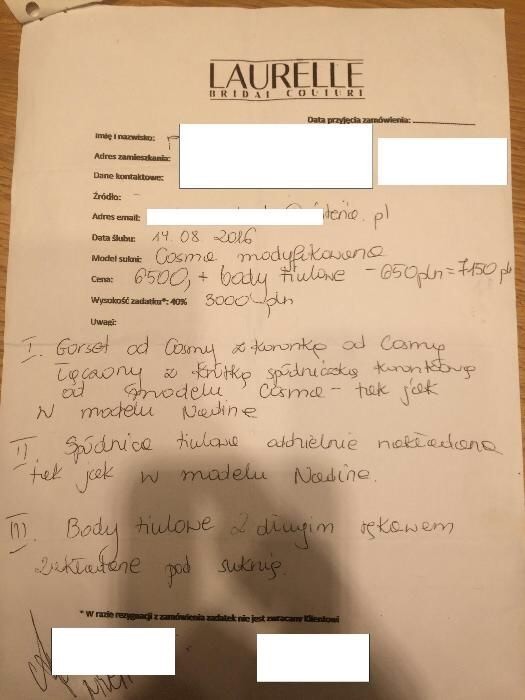 LAURELLE
BRIDAL COUTURE
Data przyjęcia zamówienia:
Imię i nazwisko:
Adres zamieszkania:
Dane kontaktowe:
Źródło:
Adres email: .pl
Data ślubu: 14.08.2016
Model sukni: Cosma modyfikowana
Cena: 6500,- + body tiulowe - 650 pln = 7150 pln
Wysokość zadatku*: 40% 3000 pln
Uwagi:
I. Gorset od Cosmy z koronką od Cosmy
łączony z krótką spódniczką koronkową
od modelu Cosma - tak jak
w modelu Nadine
II. Spódnica tiulowa oddzielnie nakładana
tak jak w modelu Nadine.
III. Body tiulowe z długim rękawem
zakładane pod suknię.
* W razie rezygnacji z zamówienia zadatek nie jest zwracany Klientowi